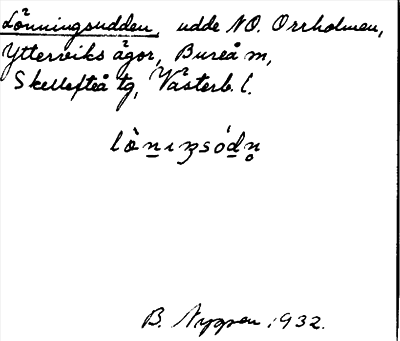 Lönningsudden, udde NO. Orrholmen,
Ytterviks ägor, Bureå m,
Skellefteå tg, Västerb. l.
lònıŋsódn̥
B. Nyggen 1932.